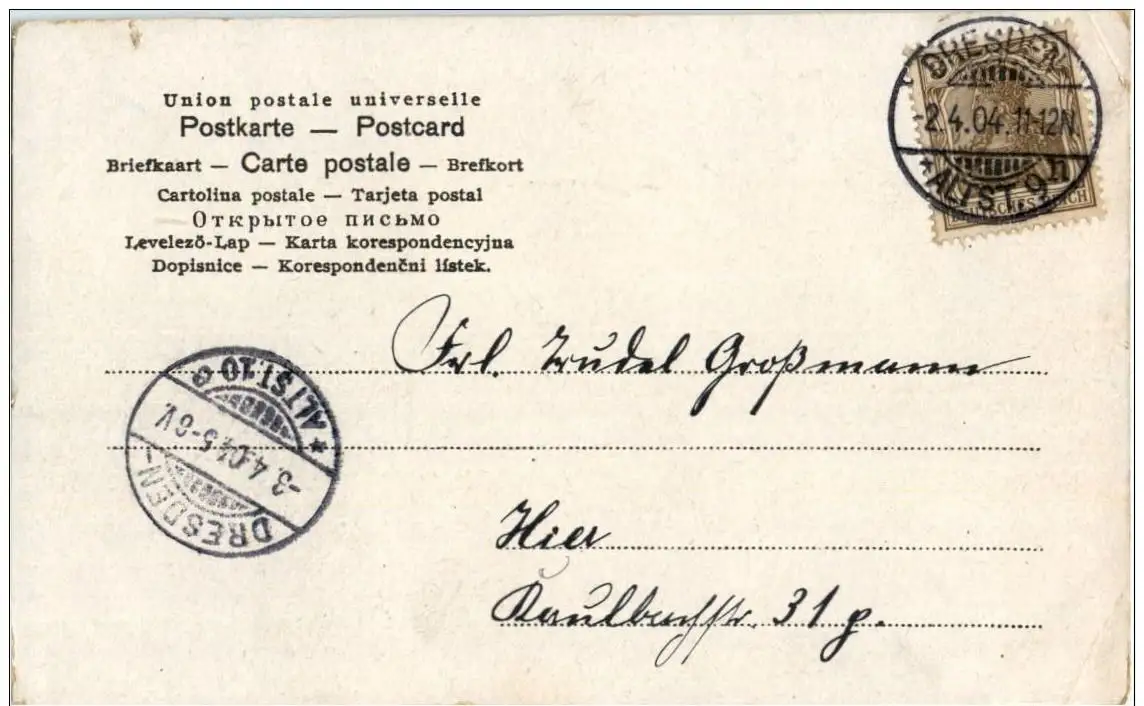 Union postale universelle
Postkarte — Postcard
Briefkaart — Carte postale — Brefkort
Cartolina postale — Tarjeta postal
Открытое письмо
Levelező-Lap — Karta korespondencyjna
Dopisnice — Korespondenčni lístek.
DRESDEN
-2.4.04.11-12N
* ALTST. 9 h
DEUTSCHES REICH
Frl. Trudel Großmann
ALTST. 10 c
-3.4.04.5-6V
DRESDEN-
Hier
Kaulbachstr. 31 p.